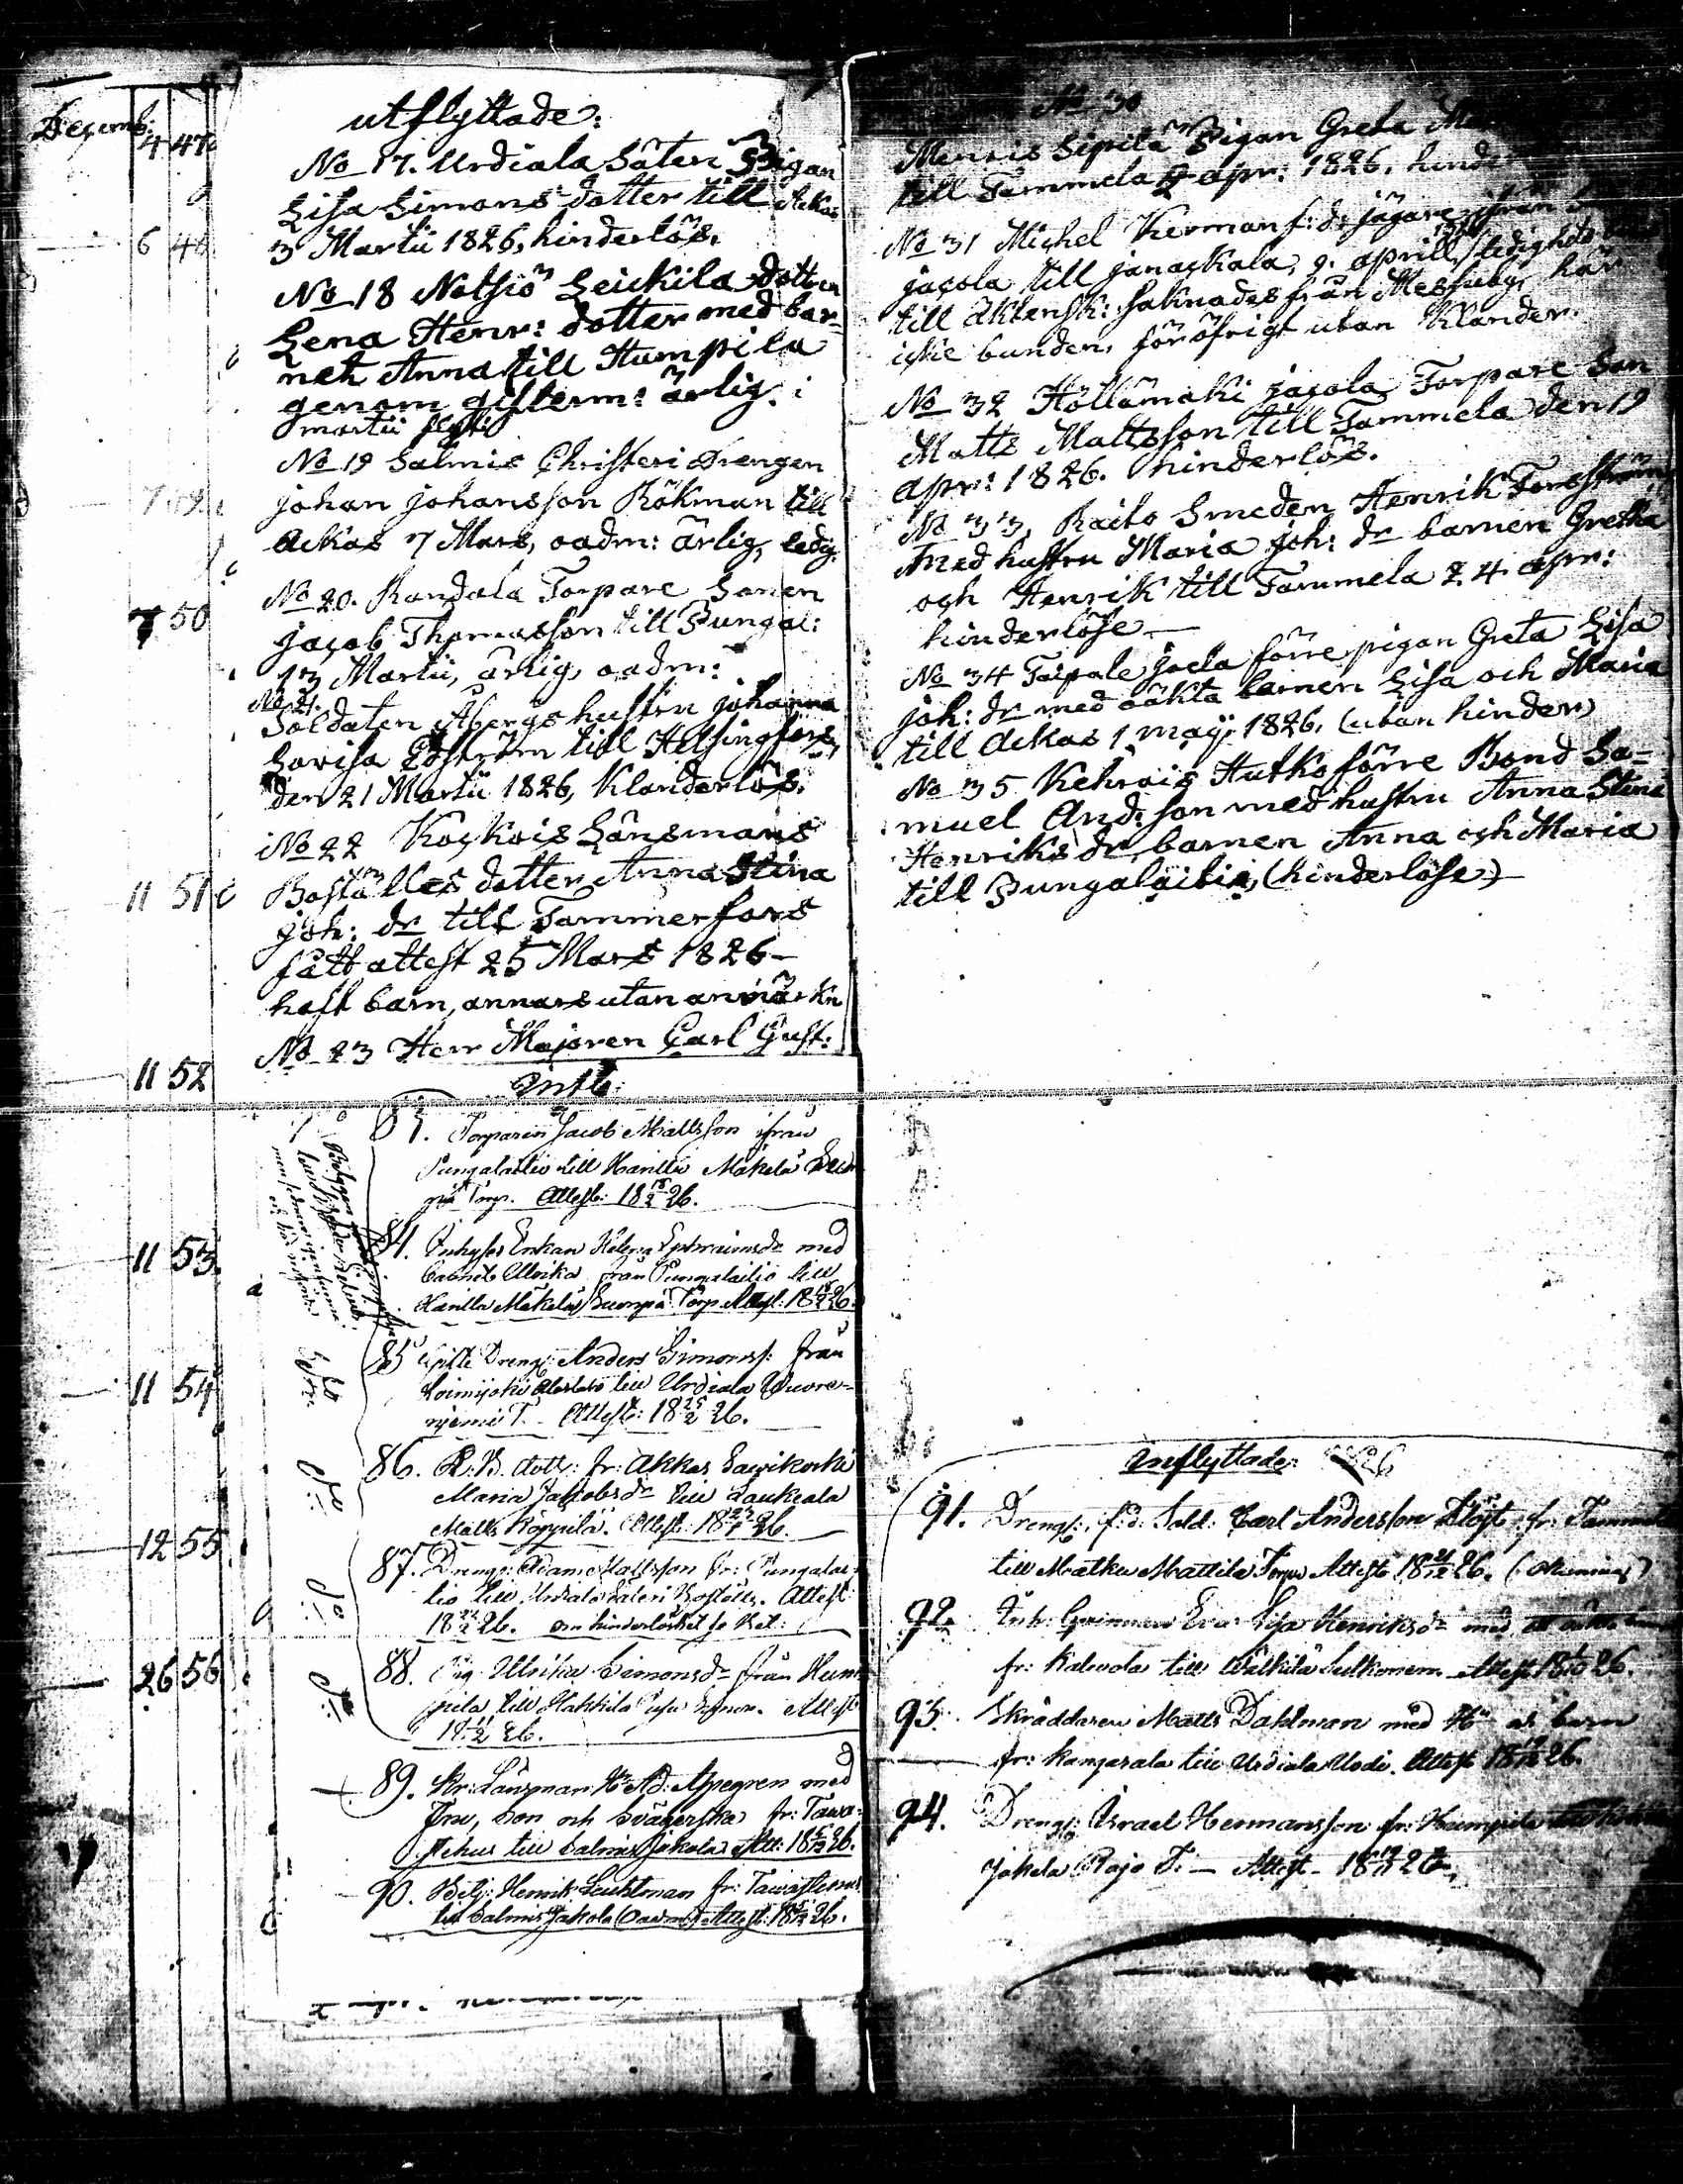 Decemb:
4 47
6 48
7 49
7 50
11 51
11 52
11 53
11 54
12 55
26 56
utflyttade:
No 17. Urdiala Säteri Pigan
Lisa Simons dotter till Ackas
3 Martii 1826, hinderlös.
No 18 Notsiö Leickila dottren
Lena Henr: dotter med bar-
net Anna till Humpila
genom gifterm: ärlig. i
martii flytt
No 19 Salmis Christeri Drengen
Johan Johansson Rökman till
Ackas 7 Mars, oadm: ärlig, ledig.
No 20. Randala Torpare Sonen
Jacob Thomasson till Pungal:
13 Martii, ärlig, oadm:
No 21.
Soldaten Åbergs hustru Johanna
Lovisa Löfström till Helsingfors,
den 21 Martii 1826, Klanderlös.
No 22 Kockois Länsmans
Boställes dotter Anna Stina
Joh: dr till Tammerfors
fått attest 25 Mars 1826 –
haft barn, annars utan anmärkn
No 23 Herr Majoren Carl Gust:
Infl:
83. Torparen Jacob Mattsson ifrån
Pungalaitio till Hanilla Mäkelä
Torp. Attest: 18 18/2 26.
84. Inhyses Enkan Helena Ephraimsdr med
barnet Ulrika från Pungalaitio till
Hanilla Mäkelä Torp Attest: 18 26.
85 Gifte Dreng: Anders Simonss: från
Loimijoki till Urdiala Wuore-
njemi T. Attest: 18 25/2 26.
86. dott: fr: Akkas Sawikoski
Maria Jakobsdr till Laukeala
Matts Köppilä. Attest: 18 26.
87. Drengen Adam Mattsson fr: Pungalai-
tio till Urdiala Säteri Boställe. Attest
18 26. om hinderlöshet se Bet:
88. Pig. Ulrika Simonsdr från Hum-
pila till Hakkila Attest
18 26.
89. Kr: Länsman Hr Ad: Aspegren med
Fru, Son och Svägerska fr: Tawa-
stehus till Salmis Jokola Att: 18 26.
90. Betj: Henrik Lechtman fr: Tawastehus
till Salmis Jakola (Oadm:) Attest: 18 26.
No 30
Menois Sipilä Pigan Greta
till Tammela 9 apr: 1826, hinder
No 31 Michel Kerman f: d: jägare ifrån
Jacola till Janackala, 9. aprill, ledighets
till äktensk: saknades från Messuby, här
icke bunden, för öfrigt utan Klander.
No 32 Höllämäki Jacola Torpare Son
Matts Mattsson till Tammela den 19
apr: 1826. hinderlös.
No 33, Raito Smeden Henrik Forsström
med hustru Maria Joh: dr barnen Gretha
och Henrik till Tammela 24 apr:
hinderlöse –
No 34 Taipale Jocla förre pigan Greta Lisa
Joh: dr med oäkta barnen Lisa och Maria
till Ackas 1 maji 1826. (utan hinder)
No 35 Kehrois Hutko förre Bond Sa-
muel And: son med hustru Anna Stina
Henriks dr, barnen Anna och Maria
till Pungalaitio, (hinderlöse) –
Inflyttade 1826
91. Drengs: f: d: Sold: Carl Andersson Flöjt fr: Tammela
till Matku Mattila Torp Attest 18 26.
92. Inh: Qwinnan Eva Lisa Henriksdr med
fr: Kalwola till Wälkilä Sulkonen. Attest 18 26.
93. Skräddaren Matts Dahlman med Hu: och barn
fr: Kangasala till Urdiala Uodi. Attest 18 26.
94. Drengs: Israel Hermansson fr: Humpila till
Jokela Rajo T: – Attest – 18 26.